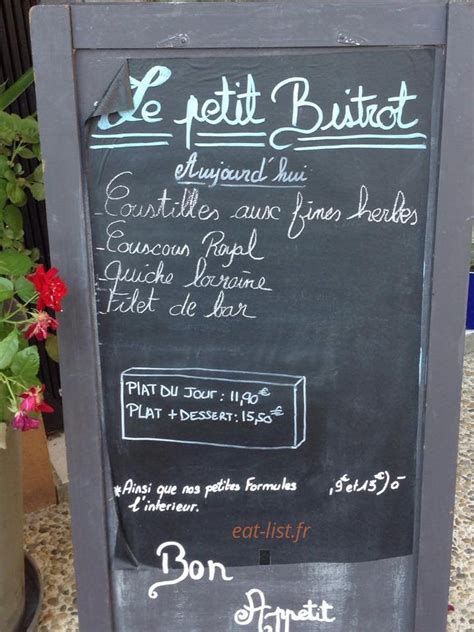 Le petit Bistrot
Aujourd'hui
- Coustilles aux fines herbes
- Couscous Royal
- Quiche lorraine
- Filet de bar
PLAT DU JOUR : 11,90€
PLAT + DESSERT : 15,50€
*Ainsi que nos petites Formules , 9€ et 13€) à
l'interieur.
eat-list.fr
Bon
Appetit